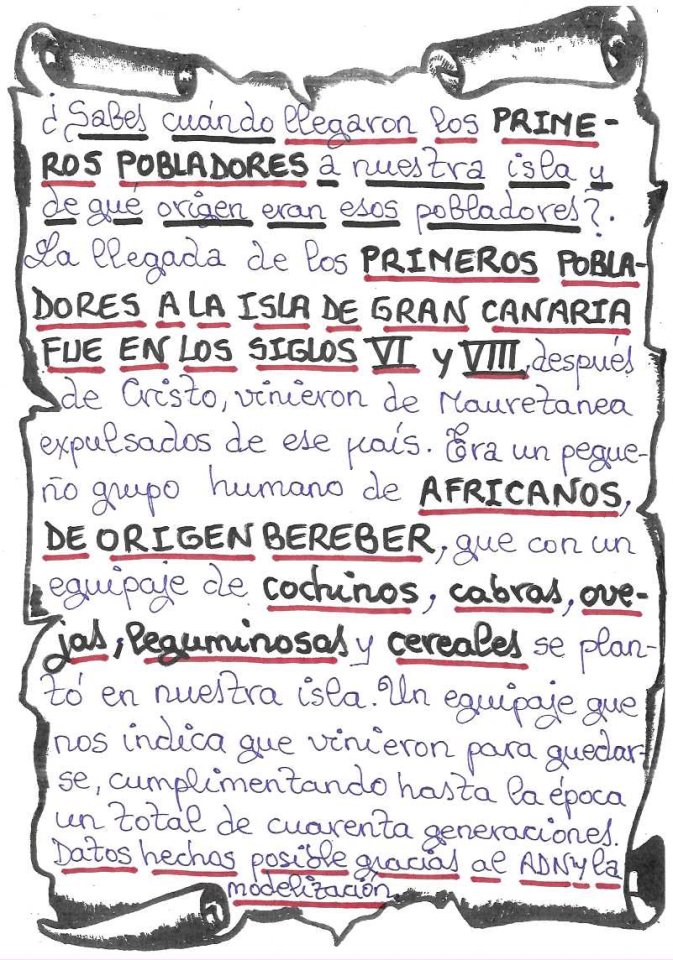 ¿Sabes cuándo llegaron los PRIME-
ROS POBLADORES a nuestra isla y
de qué origen eran esos pobladores?.
La llegada de los PRIMEROS POBLA-
DORES A LA ISLA DE GRAN CANARIA
FUE EN LOS SIGLOS VI y VIII, después
de Cristo, vinieron de Mauretanea
expulsados de ese país. Era un peque-
ño grupo humano de AFRICANOS,
DE ORIGEN BEREBER, que con un
equipaje de cochinos, cabras, ove-
jas, leguminosas y cereales se plan-
tó en nuestra isla. Un equipaje que
nos indica que vinieron para quedar-
se, cumplimentando hasta la época
un total de cuarenta generaciones.
Datos hechos posible gracias al ADN y la
modelización.